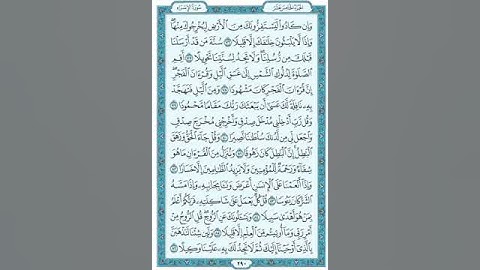 الجزء الخامس عشر
سورة الإسراء
وَإِن كَادُوا۟ لَيَسْتَفِزُّونَكَ مِنَ ٱلْأَرْضِ لِيُخْرِجُوكَ مِنْهَا
وَإِذًا لَّا يَلْبَثُونَ خِلَٰفَكَ إِلَّا قَلِيلًا ٧٦ سُنَّةَ مَن قَدْ أَرْسَلْنَا
قَبْلَكَ مِن رُّسُلِنَا وَلَا تَجِدُ لِسُنَّتِنَا تَحْوِيلًا ٧٧ أَقِمِ
ٱلصَّلَوٰةَ لِدُلُوكِ ٱلشَّمْسِ إِلَىٰ غَسَقِ ٱلَّيْلِ وَقُرْءَانَ ٱلْفَجْرِ
إِنَّ قُرْءَانَ ٱلْفَجْرِ كَانَ مَشْهُودًا ٧٨ وَمِنَ ٱلَّيْلِ فَتَهَجَّدْ
بِهِۦ نَافِلَةً لَّكَ عَسَىٰٓ أَن يَبْعَثَكَ رَبُّكَ مَقَامًا مَّحْمُودًا ٧٩
وَقُل رَّبِّ أَدْخِلْنِى مُدْخَلَ صِدْقٍ وَأَخْرِجْنِى مُخْرَجَ صِدْقٍ
وَٱجْعَل لِّى مِن لَّدُنكَ سُلْطَٰنًا نَّصِيرًا ٨٠ وَقُلْ جَآءَ ٱلْحَقُّ وَزَهَقَ
ٱلْبَٰطِلُ إِنَّ ٱلْبَٰطِلَ كَانَ زَهُوقًا ٨١ وَنُنَزِّلُ مِنَ ٱلْقُرْءَانِ مَا هُوَ
شِفَآءٌ وَرَحْمَةٌ لِّلْمُؤْمِنِينَ وَلَا يَزِيدُ ٱلظَّٰلِمِينَ إِلَّا خَسَارًا ٨٢
وَإِذَآ أَنْعَمْنَا عَلَى ٱلْإِنسَٰنِ أَعْرَضَ وَنَـَٔا بِجَانِبِهِۦ وَإِذَا مَسَّهُ
ٱلشَّرُّ كَانَ يَـُٔوسًا ٨٣ قُلْ كُلٌّ يَعْمَلُ عَلَىٰ شَاكِلَتِهِۦ فَرَبُّكُمْ أَعْلَمُ
بِمَنْ هُوَ أَهْدَىٰ سَبِيلًا ٨٤ وَيَسْـَٔلُونَكَ عَنِ ٱلرُّوحِ قُلِ ٱلرُّوحُ مِنْ
أَمْرِ رَبِّى وَمَآ أُوتِيتُم مِّنَ ٱلْعِلْمِ إِلَّا قَلِيلًا ٨٥ وَلَئِن شِئْنَا لَنَذْهَبَنَّ
بِٱلَّذِىٓ أَوْحَيْنَآ إِلَيْكَ ثُمَّ لَا تَجِدُ لَكَ بِهِۦ عَلَيْنَا وَكِيلًا ٨٦
٢٩٠